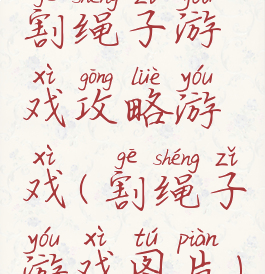 gē shéng zǐ yóu
割绳子游
xì gōng lüè yóu
戏攻略游
xì gē shéng zǐ
戏(割绳子
yóu xì tú piàn
游戏图片)